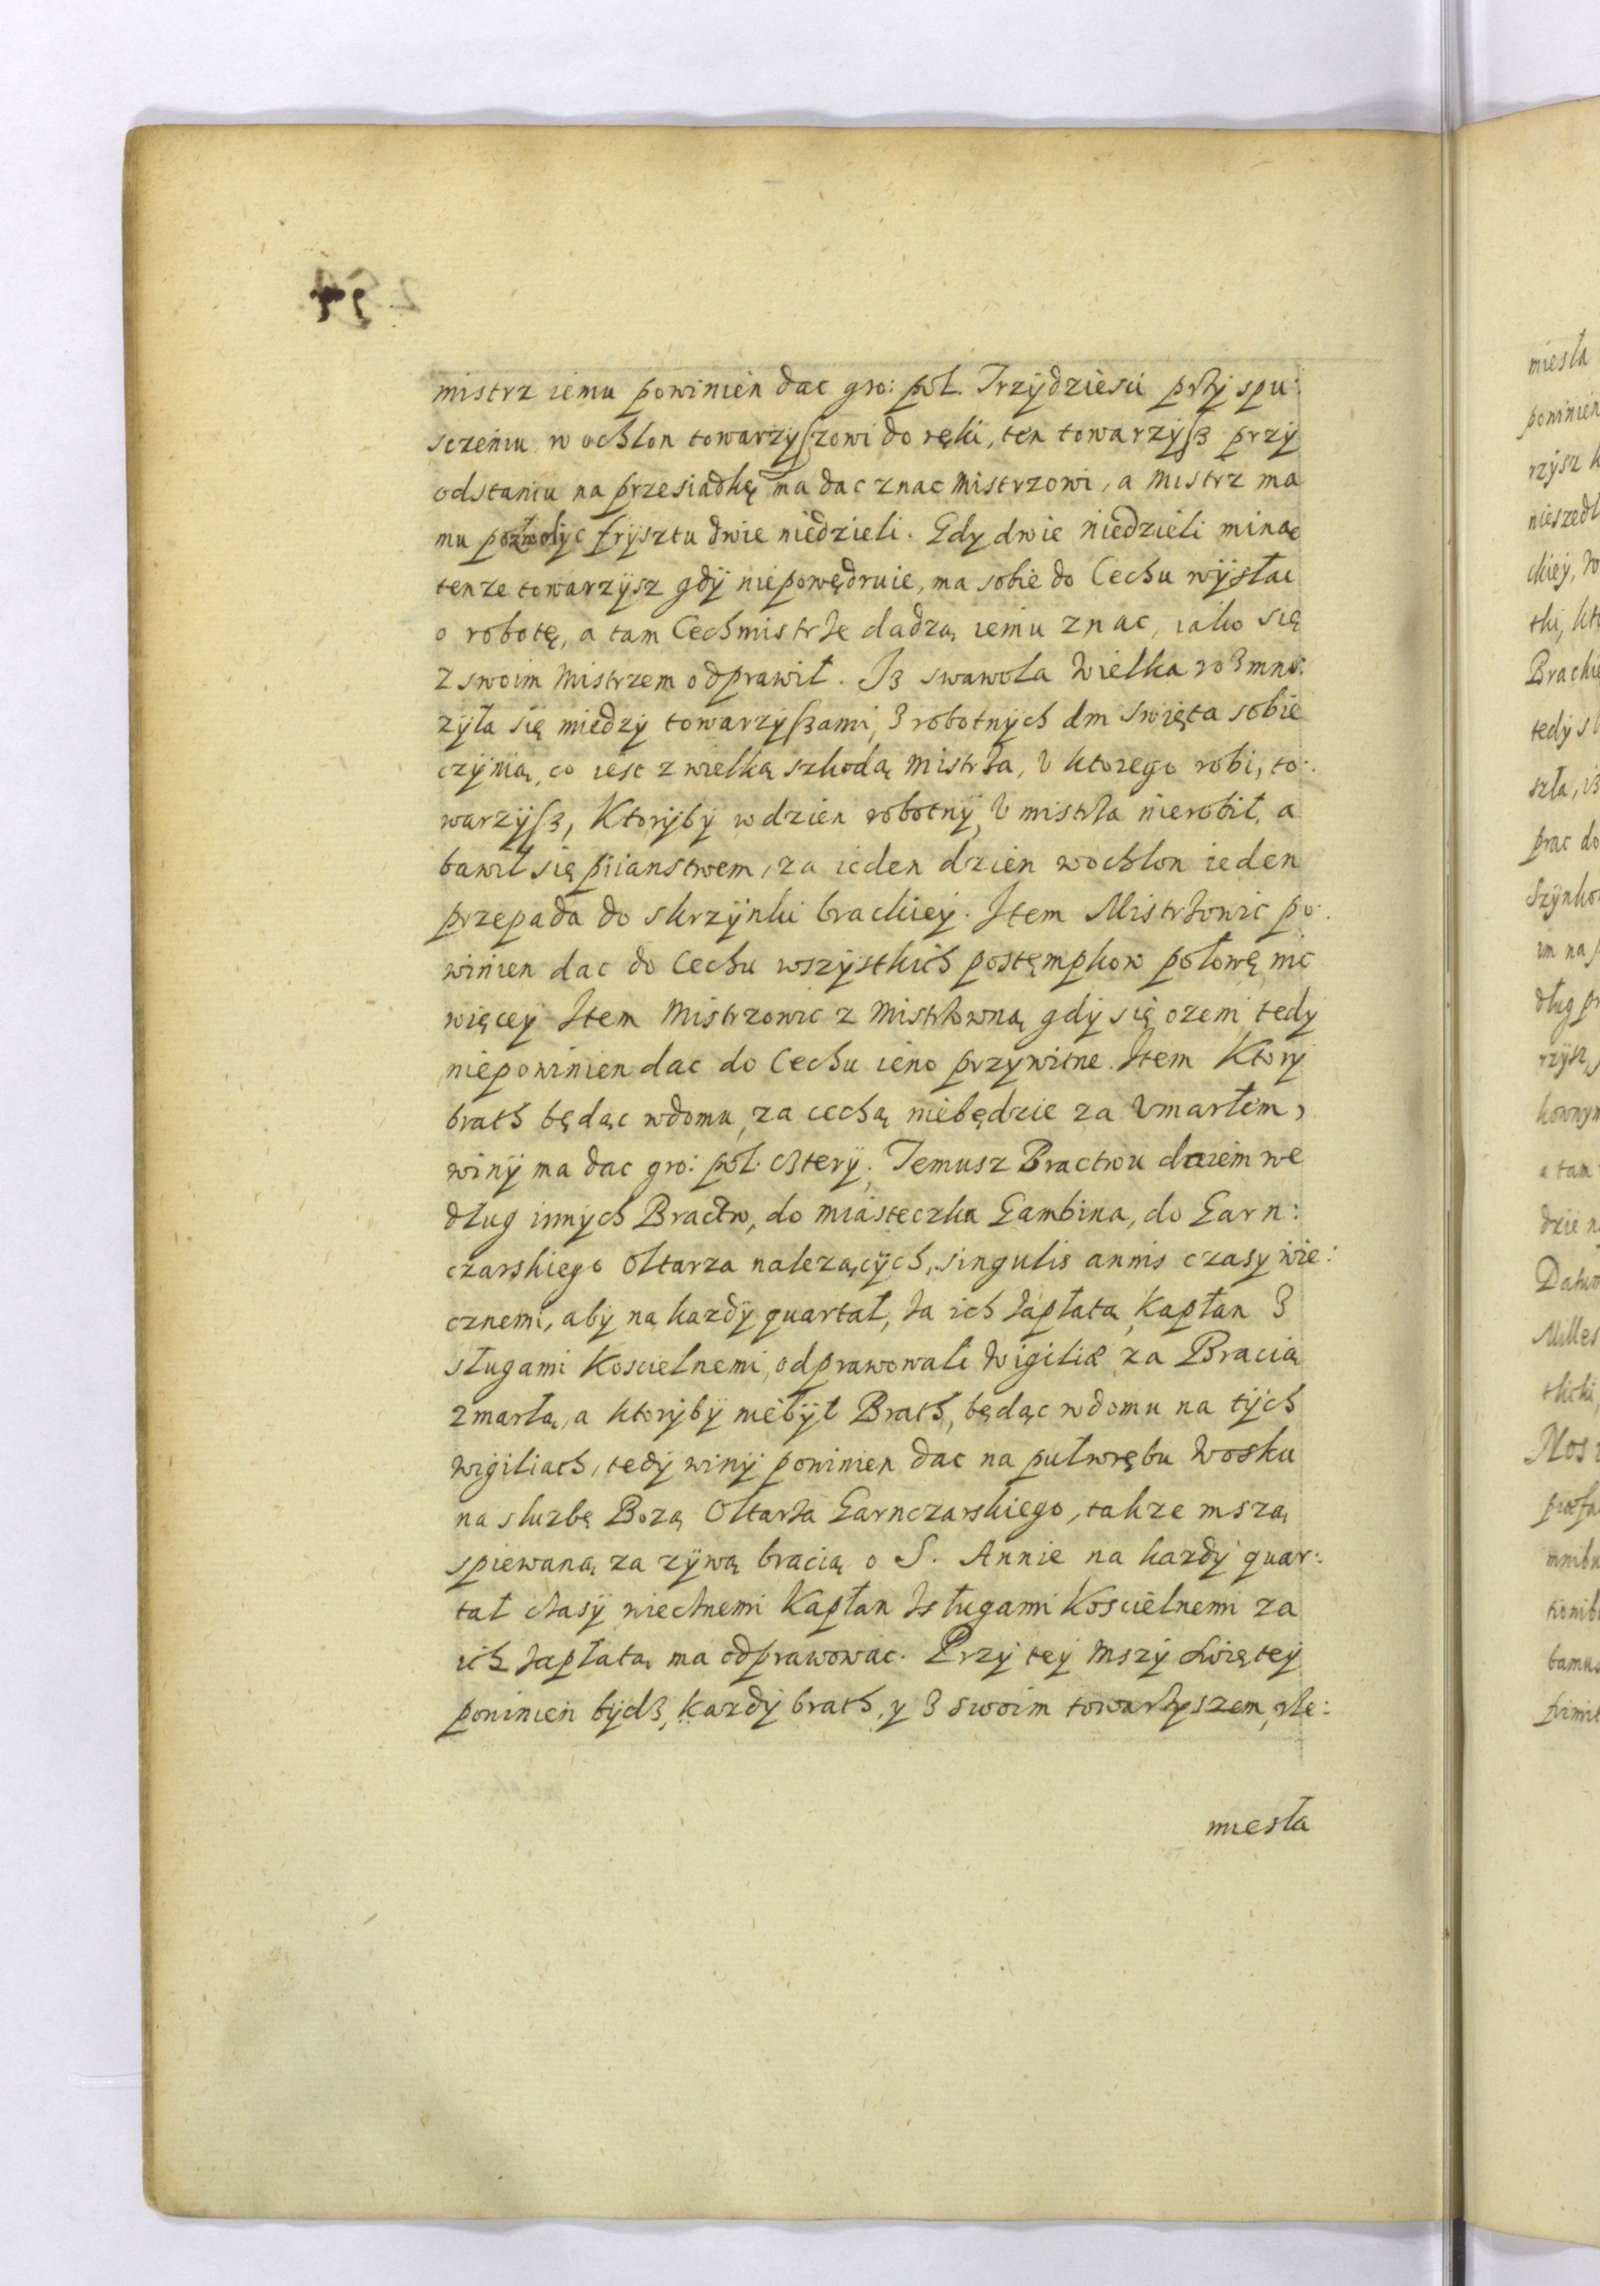 mistrz iemu powinien dac gro: pol. Trzydziesci przy spu:
sczeniu wochlon towarzyszowi do ręki, ten towarzysz przy
odstaniu na przesiadkę ma dac znac mistrzowi, a mistrz ma
mu pozwolyc frysztu dwie niedzieli. Gdy dwie niedzieli minąc
tenze towarzysz gdy niepowędruie, ma sobie do Cechu wysłac
o robotę, a tam Cechmistrze dadzą iemu znac, iako się
z swoim mistrzem odprawił. Iz swawola wielka rozmno:
zyła się miedzy towarzyszami, z robotnych dni swięta sobie
czynią, co iest z wielką szkodą mistrza, v ktorego robi, to:
warzysz, Ktoryby wdzien robotny, v mistrza nierobił, a
bawił się piianstwem, za ieden dzien wochlon ieden
przepada do skrzynki brackiey. Item Mistrzowic po:
winien dac do Cechu wszystkich postęmpkow połowę nic
więcey Item Mistrzowic z Mistrzowną gdy się ozeni tedy
niepowinien dac do Cechu ieno przywitne. Item Ktory
brath będąc wdomu, za cechą niebędzie za vmarłem,
winy ma dac gro: pol: cztery. Temusz Bractwu daiem we
dług innych Bractw, do miasteczka Gambina, do Garn:
czarskiego Oltarza nalezących, singulis annis czasy wie:
cznemi, aby na kazdy quartał, za ich zapłatą, kapłan z
sługami Koscielnemi, odprawowali wigiliæ za Bracią
zmarłą, a ktoryby niebył Brath, będąc wdomu na tych
wigiliach, tedy winy powinien dac na pułwrębu wosku
na sluzbę Bozą Oltarza Garnczarskiego, takze mszą
spiewaną za zywą bracią o S. Annie na kazdy quar:
tał czasy wiecznemi Kapłan zsługami Koscielnemi za
ich zapłatą ma odprawowac. Przy tey Mszy swiętey
powinien bydz, kazdy brath, y z swoim towarzyszem, rze:
miesła